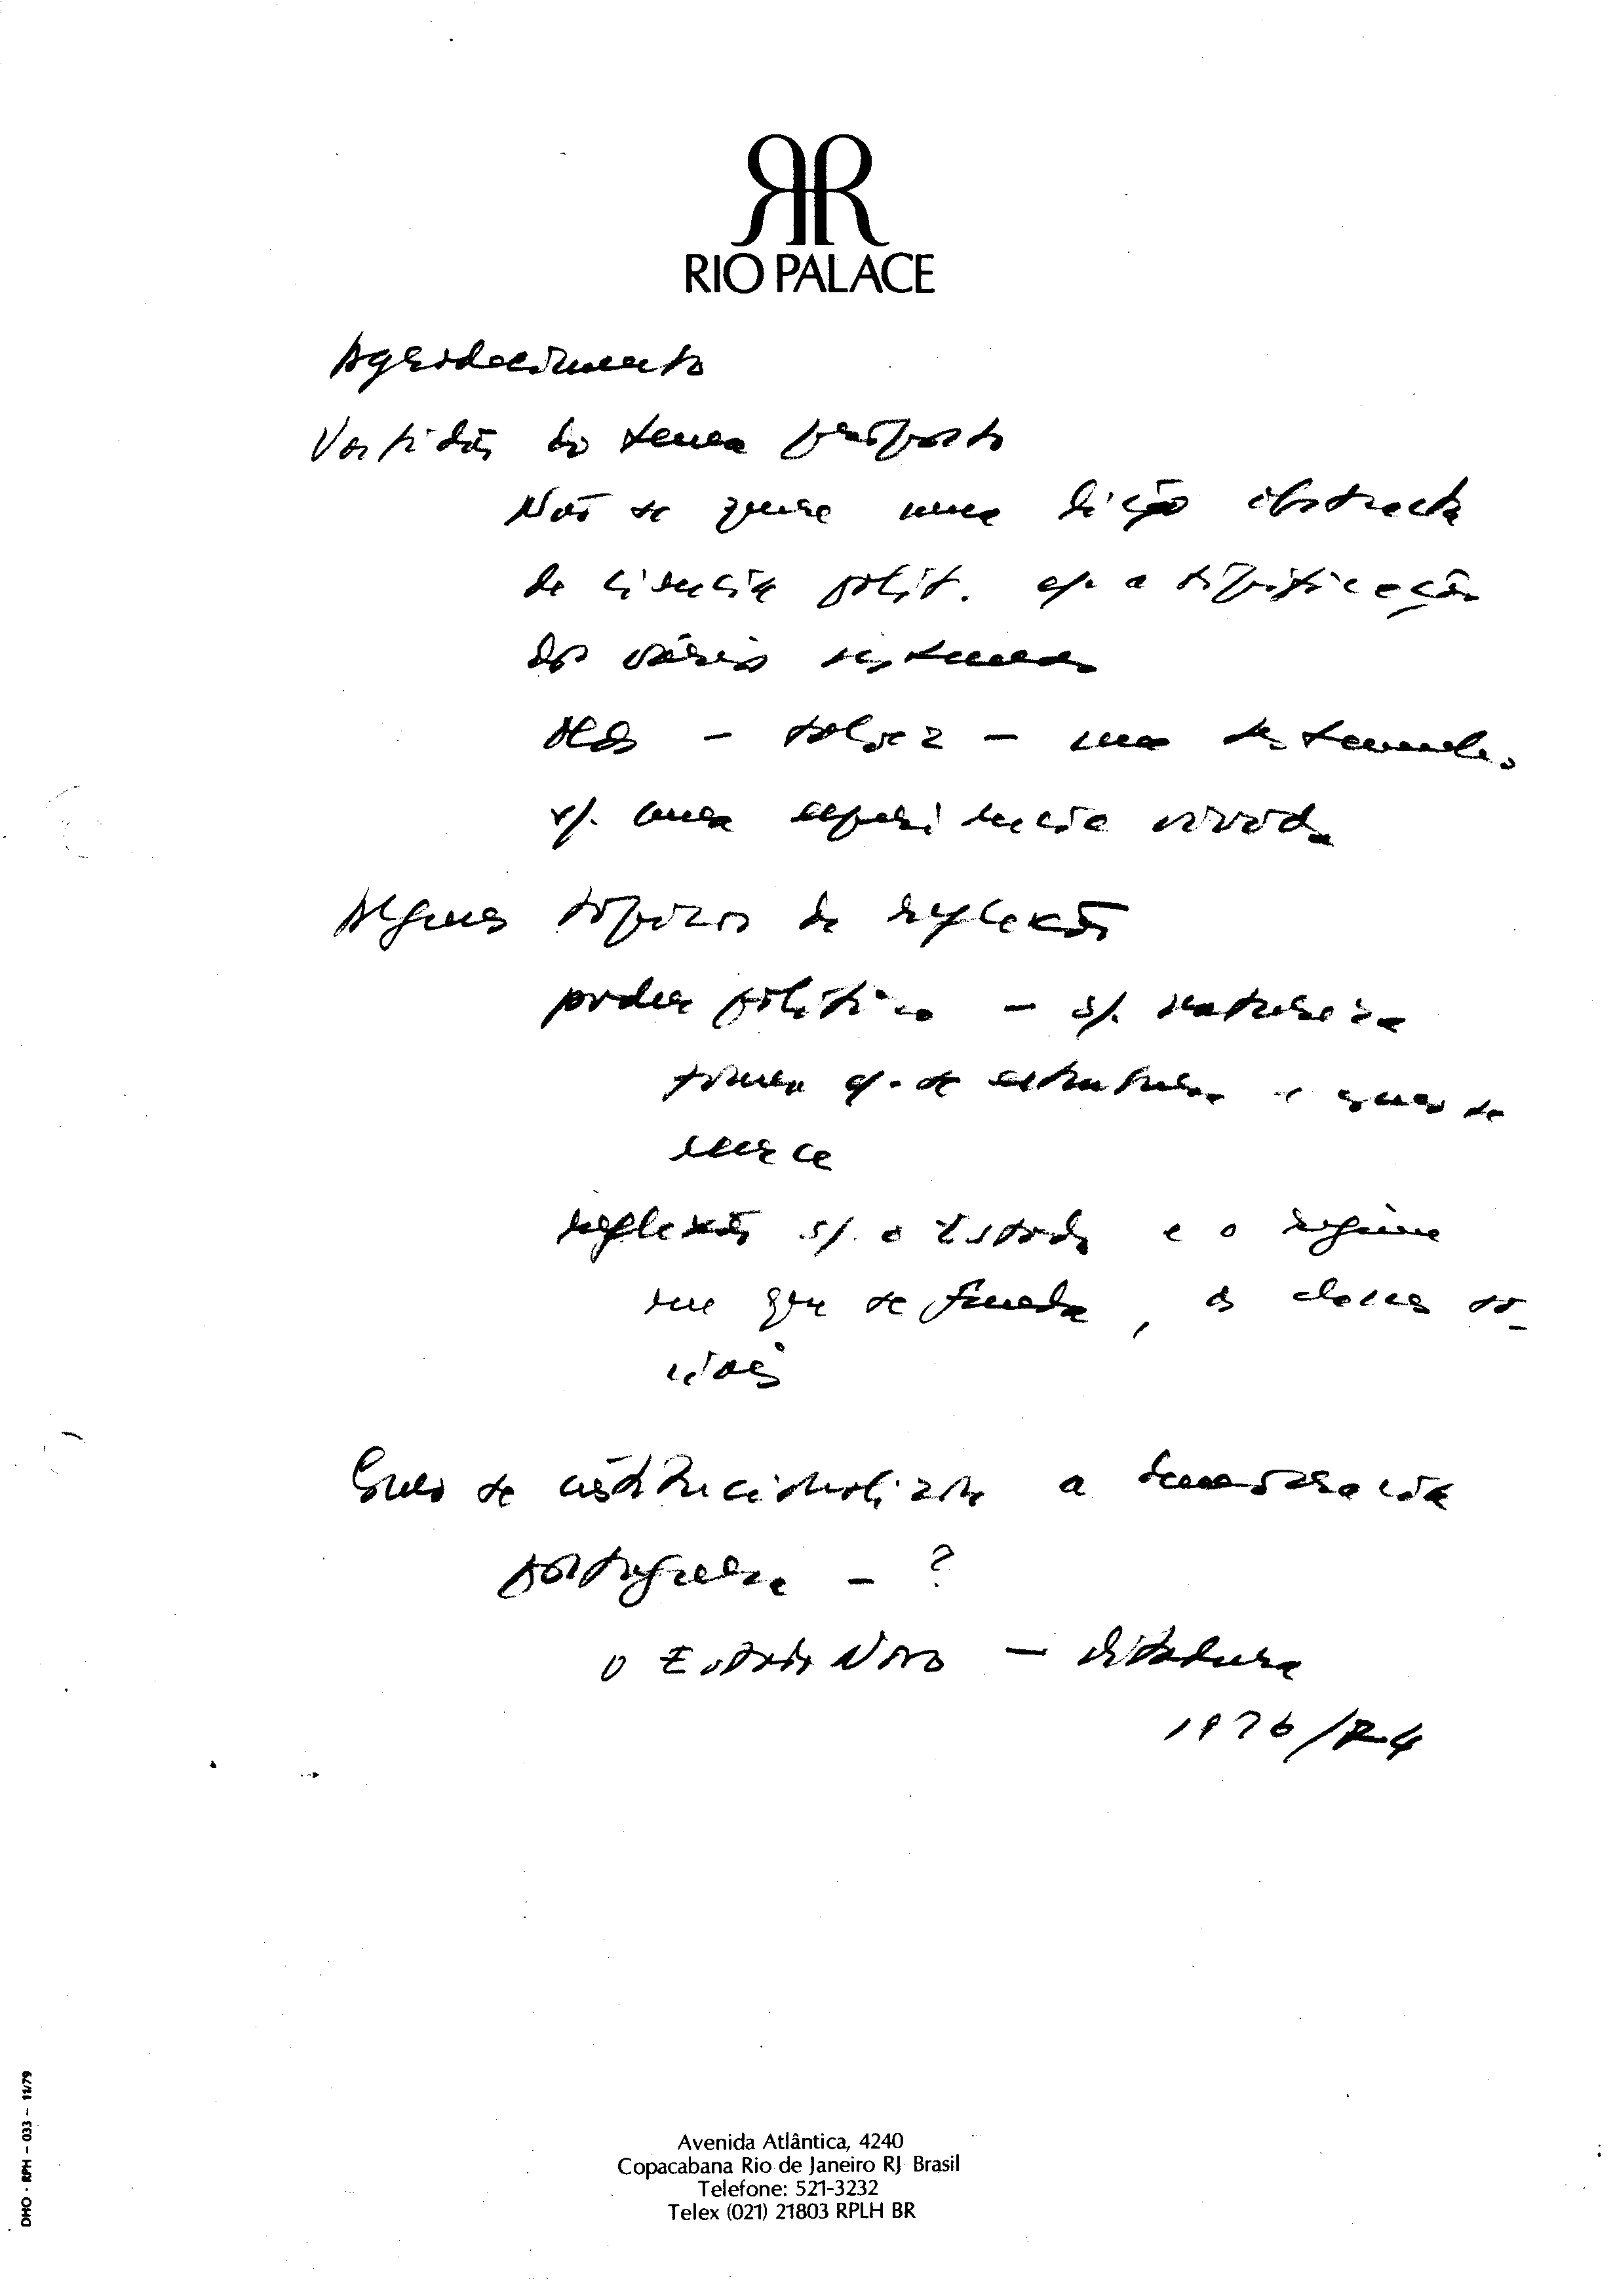 RR
RIO PALACE
Agradecimento
Vastidão do tema proposto
Não se quere uma lição abstracta
de ciência polít. c/. a tipificação
dos vários sistemas
Mas – talvez – um testemunho
s/. uma experiência vivida
Alguns tópicos de reflexão
poder político – s/. natureza
forma c/. se estrutura e como se
exerce
reflexão s/. o Estado e o regime
em que se funda, as classes so-
ciais
Como se institucionalizou a democracia
portuguesa – ?
o Estado Novo – ditadura
1926/74
DHO - RPH – 033 – 11/79
Avenida Atlântica, 4240
Copacabana Rio de Janeiro RJ Brasil
Telefone: 521-3232
Telex (021) 21803 RPLH BR